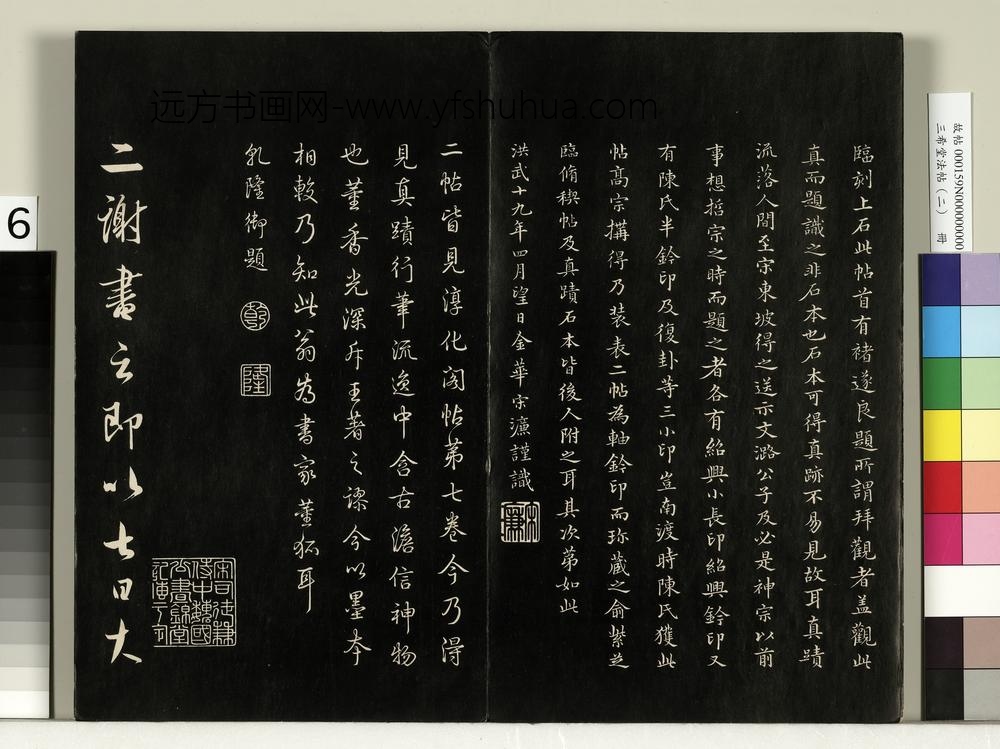 远方书画网-www.yfshuhua.com
臨刻上石此帖首有褚遂良題所謂拜觀者蓋觀此
真而題識之非石本也石本可得真跡不易見故耳真蹟
流落人間至宗東坡得之送示文潞公子及必是神宗以前
事想哲宗之時而題之者各有紹興小長印紹興鈐印又
有陳氏半鈐印及復卦等三小印豈南渡時陳氏獲此
帖高宗搆得乃装表二帖為軸鈐印而珎藏之俞紫芝
臨脩稧帖及真蹟石本皆後人附之耳其次第如此
洪武十九年四月望日金華宋濂謹識
二帖皆見淳化閣帖第七卷今乃得
見真蹟行筆流逸中含古澹信神物
也董香光深斥王著之謬今以墨本
相較乃知此翁為書家董狐耳
乾隆御題
乾
隆
二謝書云即以七日大
故帖 000159N000000000
三希堂法帖(二) 冊
6